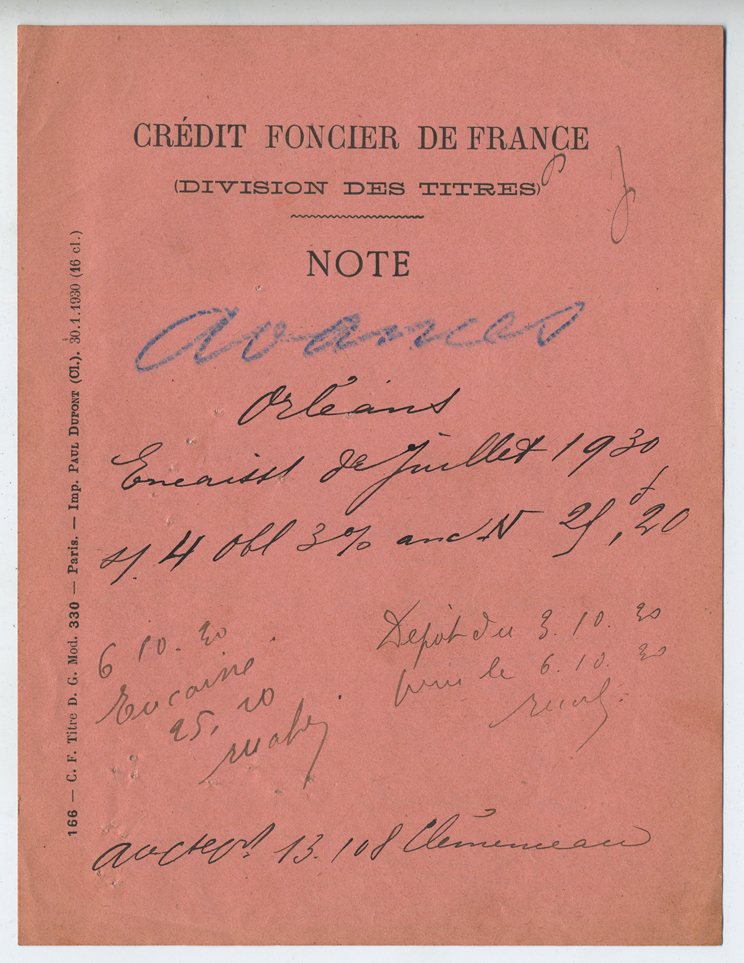 CRÉDIT FONCIER DE FRANCE
(DIVISION DES TITRES)
NOTE
avances
Orléans
Encaisst de Juillet 1930
s/. 4 Obl 3% anc N 25f,20
6 10. 30
Encaissé
25, 20
Dépôt du 3. 10. 30
pour le 6. 10. 30
13.108 Clémenceau
166 — C. F. Titre D. G. Mod. 330 — Paris. — Imp. PAUL DUPONT (Cl.). 30.1.1930 (16 cl.)